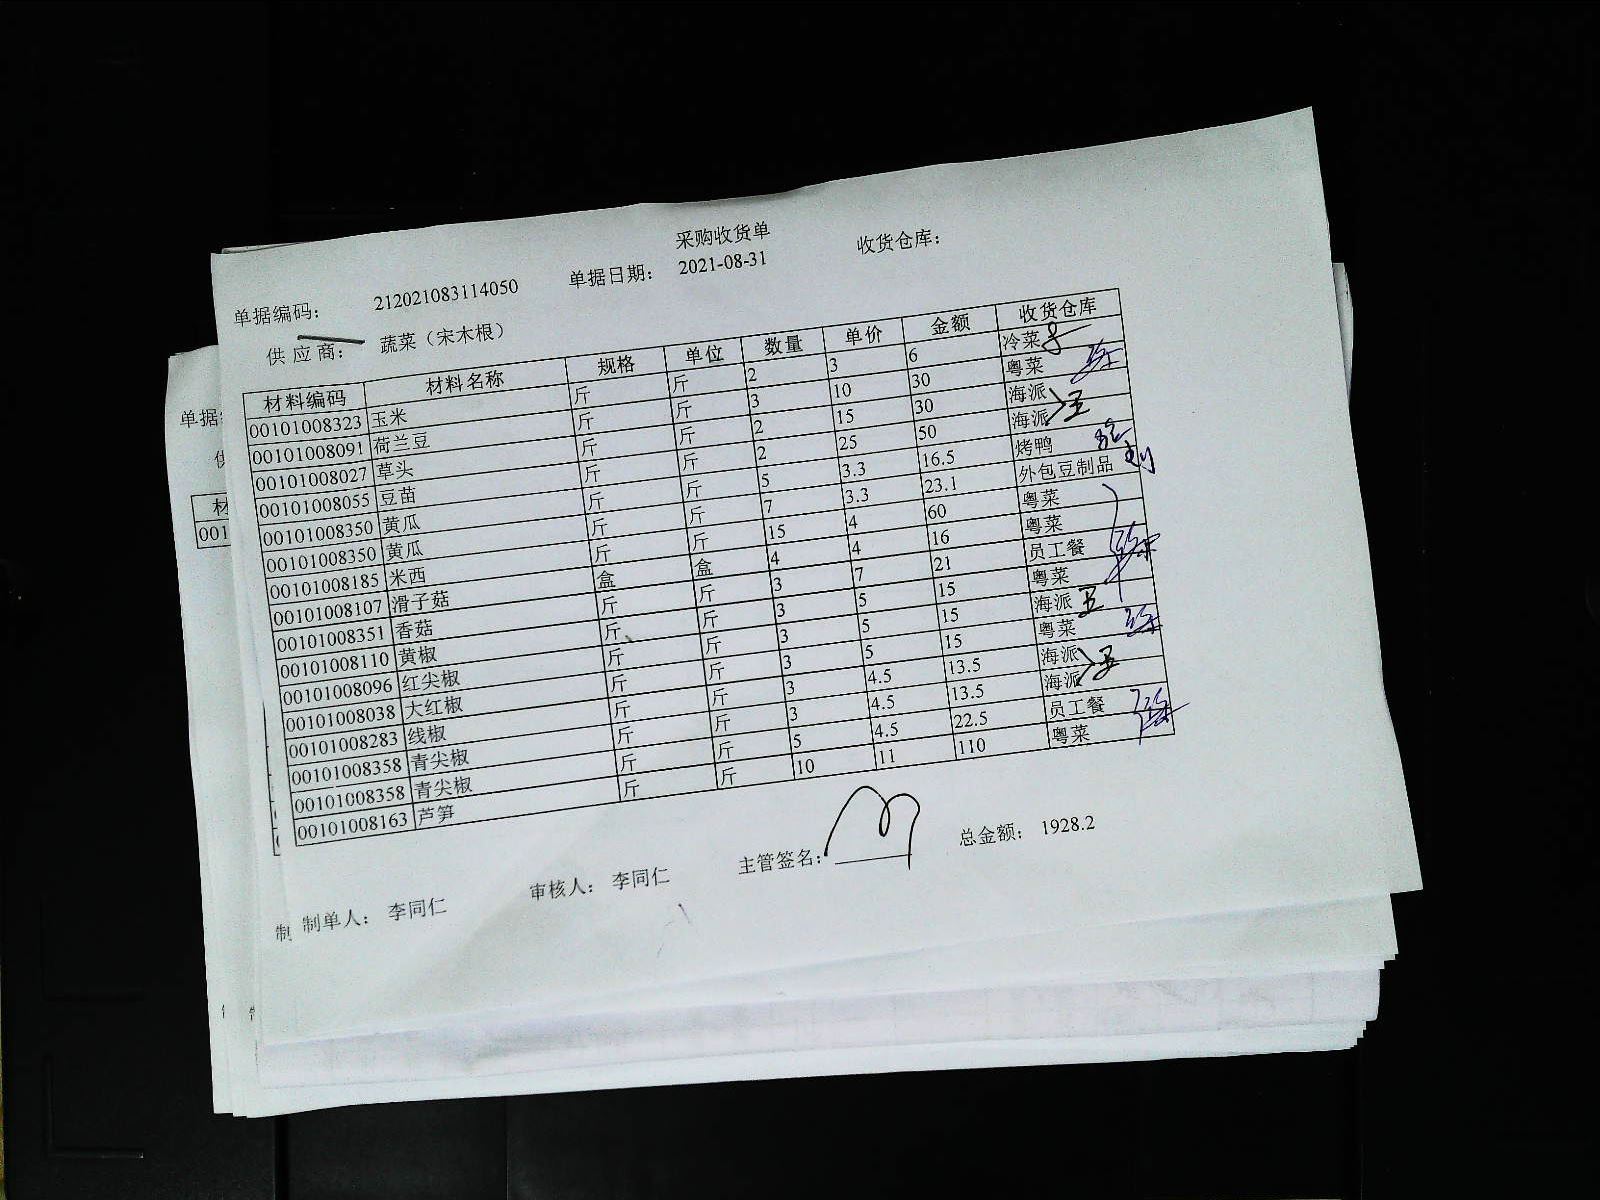 采购收货单
单据编码： 212021083114050 单据日期： 2021-08-31 收货仓库：
供 应 商： 蔬菜（宋木根）
材料编码 材料名称 规格 单位 数量 单价 金额 收货仓库
00101008323 玉米 斤 斤 2 3 6 冷菜
00101008091 荷兰豆 斤 斤 3 10 30 粤菜
00101008027 草头 斤 斤 2 15 30 海派
00101008055 豆苗 斤 斤 2 25 50 海派 王
00101008350 黄瓜 斤 斤 5 3.3 16.5 烤鸭
00101008350 黄瓜 斤 斤 7 3.3 23.1 外包豆制品
00101008185 米西 斤 斤 15 4 60 粤菜
00101008107 滑子菇 盒 盒 4 4 16 粤菜
00101008351 香菇 斤 斤 3 7 21 员工餐
00101008110 黄椒 斤 斤 3 5 15 粤菜
00101008096 红尖椒 斤 斤 3 5 15 海派 王
00101008038 大红椒 斤 斤 3 5 15 粤菜
00101008283 线椒 斤 斤 3 4.5 13.5 海派
00101008358 青尖椒 斤 斤 3 4.5 13.5 海派 王
00101008358 青尖椒 斤 斤 5 4.5 22.5 员工餐
00101008163 芦笋 斤 斤 10 11 110 粤菜
制单人： 李同仁 审核人： 李同仁 主管签名： 总金额： 1928.2
单据
材
001
制